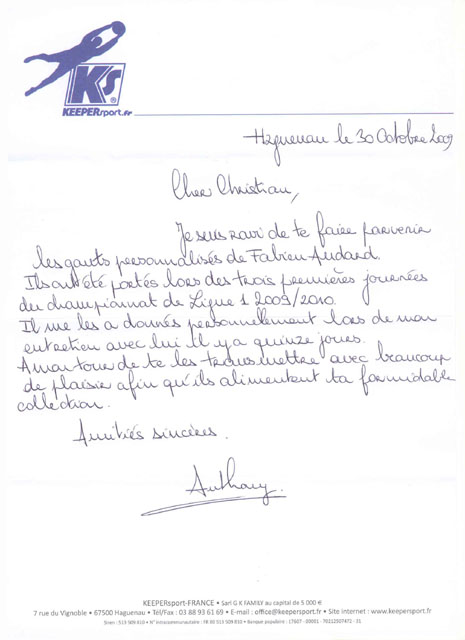 KS®
KEEPERsport.fr
Haguenau le 30 Octobre 2009
Cher Christian,
Je suis ravi de te faire parvenir
les gants personnalisés de Fabien Audard.
Ils ont été portés lors des trois premières journées
du championnat de Ligue 1 2009/2010.
Il me les a donnés personnellement lors de mon
entretien avec lui il y a quinze jours.
A mon tour de te les transmettre avec beaucoup
de plaisir afin qu'ils alimentent ta formidable
collection.
Amitiés sincères.
Anthony.
KEEPERsport-FRANCE • Sarl G K FAMILY au capital de 5 000 €
7 rue du Vignoble • 67500 Haguenau • Tél/Fax : 03 88 93 61 69 • E-mail : office@keepersport.fr • Site internet : www.keepersport.fr